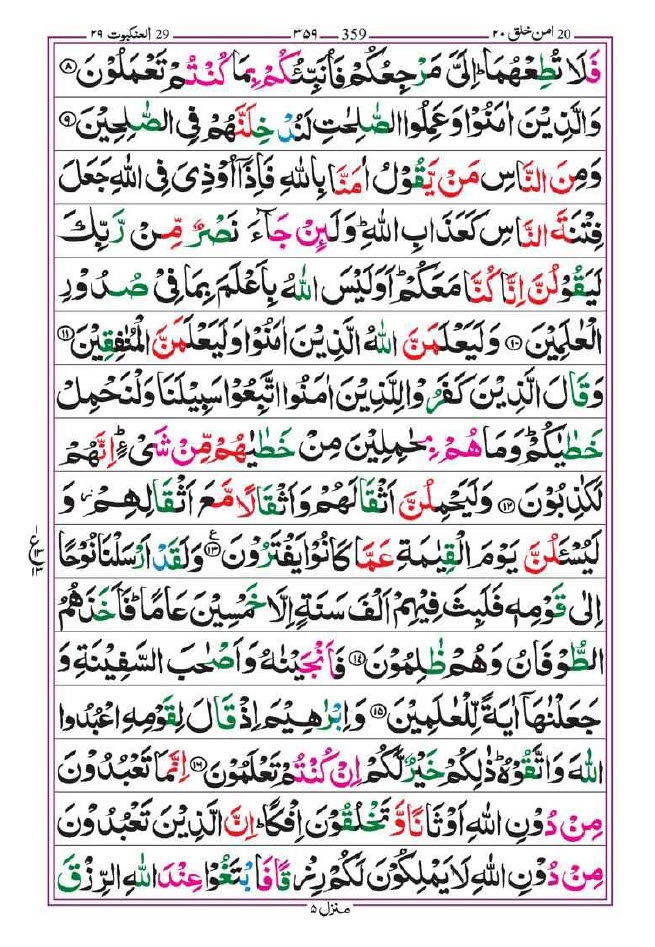 20 امن خلق ۲۰ 359 ۳۵۹ 29 العنکبوت ۲۹
فَلَا تُطِعْهُمَا ؕ اِلَیَّ مَرْجِعُكُمْ فَاُنَبِّئُكُمْ بِمَا كُنْتُمْ تَعْمَلُوْنَ ۸
وَالَّذِیْنَ اٰمَنُوْا وَعَمِلُوا الصّٰلِحٰتِ لَنُدْخِلَنَّهُمْ فِی الصّٰلِحِیْنَ ۹
وَمِنَ النَّاسِ مَنْ یَّقُوْلُ اٰمَنَّا بِاللّٰهِ فَاِذَاۤ اُوْذِیَ فِی اللّٰهِ جَعَلَ
فِتْنَةَ النَّاسِ كَعَذَابِ اللّٰهِ ؕ وَلَئِنْ جَآءَ نَصْرٌ مِّنْ رَّبِّكَ
لَیَقُوْلُنَّ اِنَّا كُنَّا مَعَكُمْ ؕ اَوَلَیْسَ اللّٰهُ بِاَعْلَمَ بِمَا فِیْ صُدُوْرِ
الْعٰلَمِیْنَ ۱۰ وَلَیَعْلَمَنَّ اللّٰهُ الَّذِیْنَ اٰمَنُوْا وَلَیَعْلَمَنَّ الْمُنٰفِقِیْنَ ۱۱
وَقَالَ الَّذِیْنَ كَفَرُوْا لِلَّذِیْنَ اٰمَنُوا اتَّبِعُوْا سَبِیْلَنَا وَلْنَحْمِلْ
خَطٰیٰكُمْ ؕ وَمَا هُمْ بِحٰمِلِیْنَ مِنْ خَطٰیٰهُمْ مِّنْ شَیْءٍ ؕ اِنَّهُمْ
لَكٰذِبُوْنَ ۱۲ وَلَیَحْمِلُنَّ اَثْقَالَهُمْ وَاَثْقَالًا مَّعَ اَثْقَالِهِمْ ؗ وَ
لَیُسْـَٔلُنَّ یَوْمَ الْقِیٰمَةِ عَمَّا كَانُوْا یَفْتَرُوْنَ ۱۳ ع وَلَقَدْ اَرْسَلْنَا نُوْحًا
ع ۱ ۱۳ ۱۳
اِلٰی قَوْمِهٖ فَلَبِثَ فِیْهِمْ اَلْفَ سَنَةٍ اِلَّا خَمْسِیْنَ عَامًا ؕ فَاَخَذَهُمُ
الطُّوْفَانُ وَهُمْ ظٰلِمُوْنَ ۱۴ فَاَنْجَیْنٰهُ وَاَصْحٰبَ السَّفِیْنَةِ وَ
جَعَلْنٰهَاۤ اٰیَةً لِّلْعٰلَمِیْنَ ۱۵ وَاِبْرٰهِیْمَ اِذْ قَالَ لِقَوْمِهِ اعْبُدُوا
اللّٰهَ وَاتَّقُوْهُ ؕ ذٰلِكُمْ خَیْرٌ لَّكُمْ اِنْ كُنْتُمْ تَعْلَمُوْنَ ۱۶ اِنَّمَا تَعْبُدُوْنَ
مِنْ دُوْنِ اللّٰهِ اَوْثَانًا وَّتَخْلُقُوْنَ اِفْكًا ؕ اِنَّ الَّذِیْنَ تَعْبُدُوْنَ
مِنْ دُوْنِ اللّٰهِ لَا یَمْلِكُوْنَ لَكُمْ رِزْقًا فَابْتَغُوْا عِنْدَ اللّٰهِ الرِّزْقَ
منزل ۵